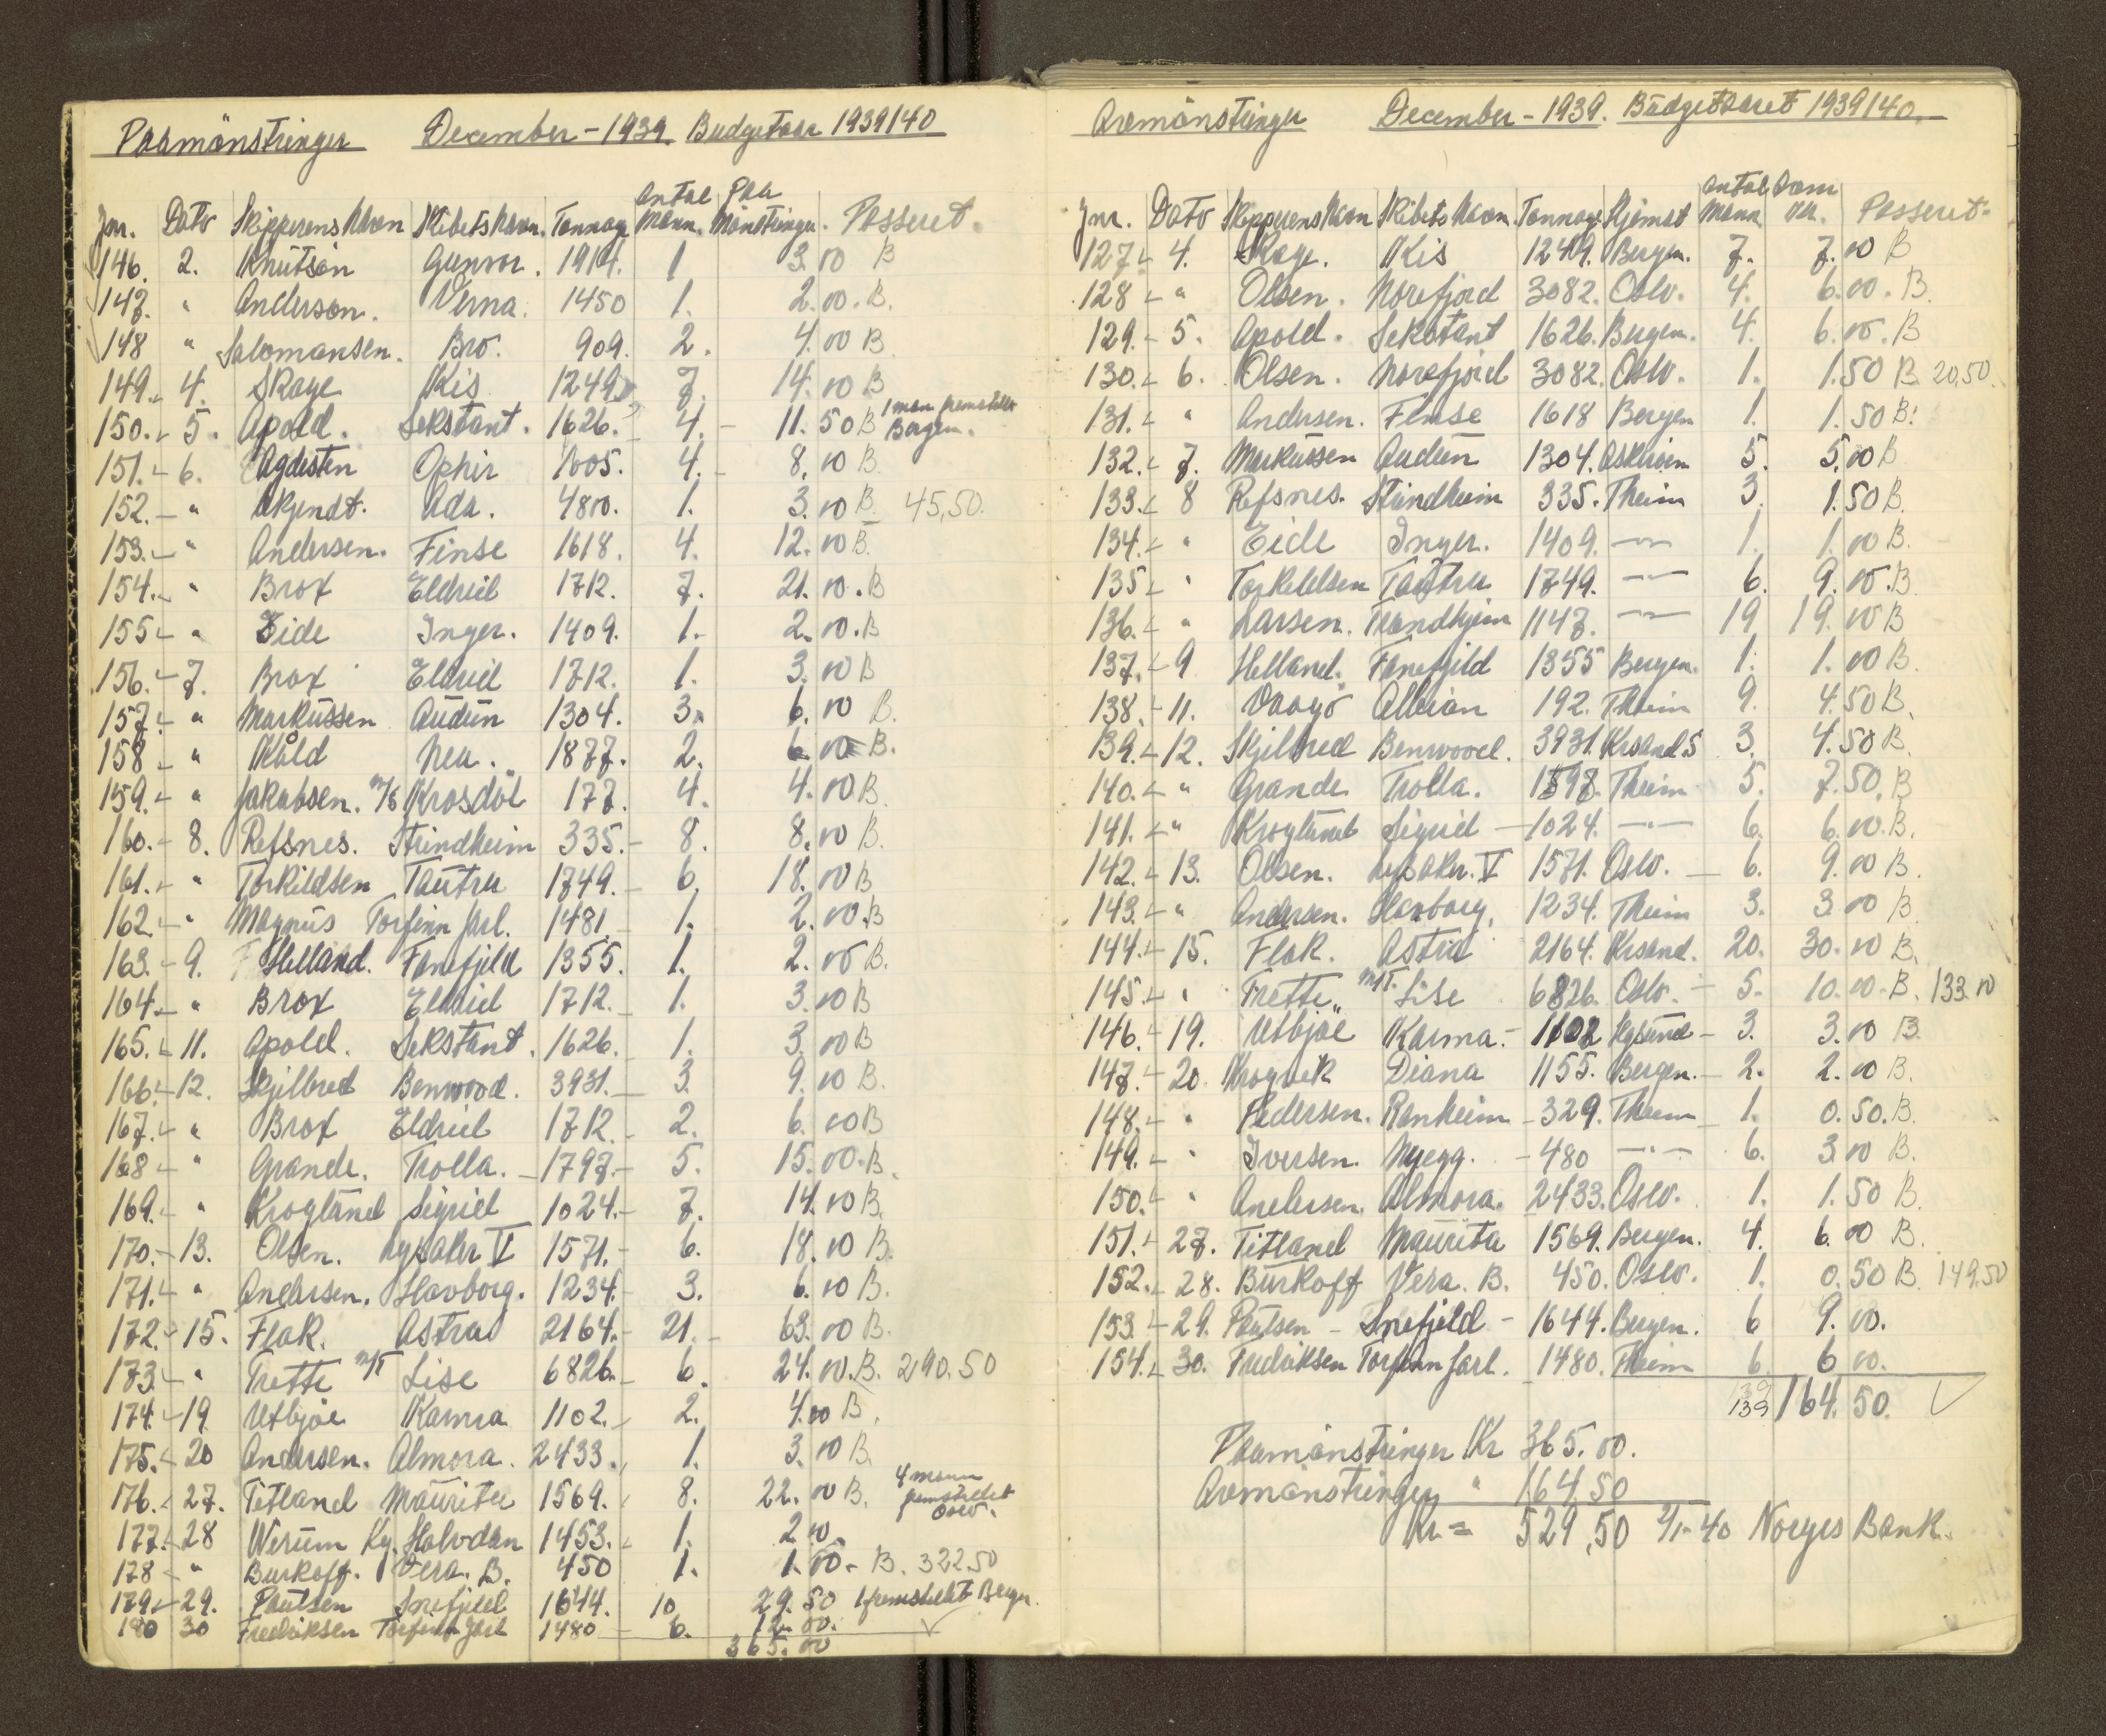 Paamönstringer December - 1939. Budgetaar 1939/40
Jnr. Dato Skipperens Navn Skibets Navn. Tonnage Antal Mann. Paa Mönstringer. Passeret.
146. 2. Knutsen Gunvor. 1914. 1 3.00 B
147. " Anderson. Verna. 1450 1. 2.00. B.
148 " Salomonsen. Bro. 909. 2. 4.00 B
149. 4. Skage Kis 1249. 7. 14.00 B
150. 5. Apold. Sekstant. 1626. 4. - 11.50 B 1 man fremstillt Bergen.
151. 6. Agdesten Ophir 1005. 4. - 8.00 B.
152. - " Ada. 4800. 1. 3.00 B. 45,50.
153. - " Andersen. Finse 1618. 4. 12.00 B.
154. - " Brox Eldrid 1712. 7. 21.00. B
155 - " Eide Inger. 1409. 1. 2.00. B
156. - 7. Brox Eldrid 1712. 1. 3.00 B
157. - " Markussen Audun 1304. 3. 6.00 B.
158 - " Kåld Nea. 1877. 2. 6.00 B.
159. - " Jakobsen. m/s Krosdöl 177. 4. 4.00 B.
160. - 8. Refsnes. Strindheim 335. - 8. 8.00 B.
161. - " Torkildsen Tautra 1749. - 6. 18.00 B
162. - " Magnus Torfinn Jarl. 1481. - 1. 2.00. B
163. - 9. Helland. Fanefjeld 1355. 1. 2.00 B.
164. - " Brox Eldrid 1712. - 1. 3.00 B
165. - 11. Apold. Sekstant. 1626. - 1. 3.00 B
166. - 12. Skjelbred Benwood. 3931. - 3. 9.00 B.
167. - " Brox Eldrid 1712. - 2. 6.00 B
168 - " Grande. Trolla. - 1797. - 5. 15.00. B.
169. - " Kroglund Sigrid 1024. - 7. 14.00 B.
170. - 13. Olsen. Lysaker V 1571. - 6. 18.00 B.
171. - " Andersen. Havborg. 1234. - 3. 6.00 B.
172. - 15. Flak. Astra 2164. - 21. - 63.00 B.
173. - " Trette m/T Lise 6826. - 6. 24.00. B. 290.50
174. - 19 Utbjöe Karma 1102. - 2. 4.00 B.
175. - 20 Andersen. Almora. 2433. - 1. 3.00 B.
176. - 27. Titland Maurita 1569. - 8. 22.00 B. 4 mann fremstillet Oslo.
177. - 28 Werum Kg. Halvdan 1453. - 1. 2.00.
178 - " Burkoff. Vera. B. 450 1. 1.00. - B. 322.50
179. - 29. Poulsen Snefjeld 1644. 10 29.50 1 fremstillt Bergen.
180 30 Fredriksen Torfinn Jarl 1480 - 6. 12.00.
365.00
Avmönstringer December - 1939. Budgetaaret 1939/40.
Jnr. Dato Skipperens Navn Skibets Navn Tonnage Hjemst Antal Mann Sum kr. Passeret.
127 - 4. Skage. Kis 1249. Bergen. 7. 7.00 B
128 - " Olsen. Norefjord 3082. Oslo. 4. 6.00. B.
129. - 5. Apold. Sekstant 1626. Bergen. 4. 6.00. B
130. - 6. Olsen. Norefjord 3082. Oslo. 1. 1.50 B. 20,50.
131. - " Andersen. Finse 1618 Bergen 1. 1.50 B.
132. - 7. Markussen Audun 1304. Askheim 5. 5.00 B
133. - 8 Refsnes. Strindheim 335. Theim 3. 1.50 B.
134. - " Eide Inger. 1409. -"- 1. 1.00 B.
135 - " Torkildsen Tautra 1749. -"- 6. 9.00. B.
136. - " Larsen. Trondhjem 1147. -"- 19 19.00 B
137. - 9 Helland. Fanefjeld 1355 Bergen. 1. 1.00 B.
138. - 11. Vaagö Albion 192. Theim 9. 4.50 B.
139. - 12. Skjelbred Benwood. 3931. Krsand S 3. 4.50 B.
140. - " Grande Trolla. 1798. Theim 5. 7.50. B
141. - " Kroglund Sigrid - 1024. -"- 6. 6.00. B.
142. - 13. Olsen. Lysaker. V 1571. Oslo. - 6. 9.00 B.
143. - " Andersen. Havborg. 1234. Theim 3. 3.00 B.
144. - 15. Flak. Astra 2164. Krsand. 20. 30.00 B.
145. - " Trette. m/T. Lise 6826. Oslo. - 5. 10.00. B. 133.00
146. - 19. Utbjöe Karma. - 1102 Hgsund - 3. 3.00 B.
147. - 20. Krogvik Diana 1155. Bergen. - 2. 2.00 B.
148. - " Pedersen. Ranheim - 329. Theim - 1. 0.50. B.
149. - " Iversen. Nyegg. - 480 -"- 6. 3.00 B.
150. - " Andersen. Almora. 2433. Oslo. 1. 1.50 B.
151. - 27. Titland Maurita 1569. Bergen. 4. 6.00 B.
152. - 28. Burkoff Vera. B. 450. Oslo. 1. 0.50 B. 149.50
153. - 29. Poulsen - Snefjeld - 1644. Bergen. 6 9.00.
154. - 30. Fredriksen Torfinn Jarl. 1480. Theim 6. 6.00.
139 139 164.50.
Paamönstringer Kr 365.00.
Avmönstringer " 164.50
Kr = 529,50 2/1-40 Norges Bank.